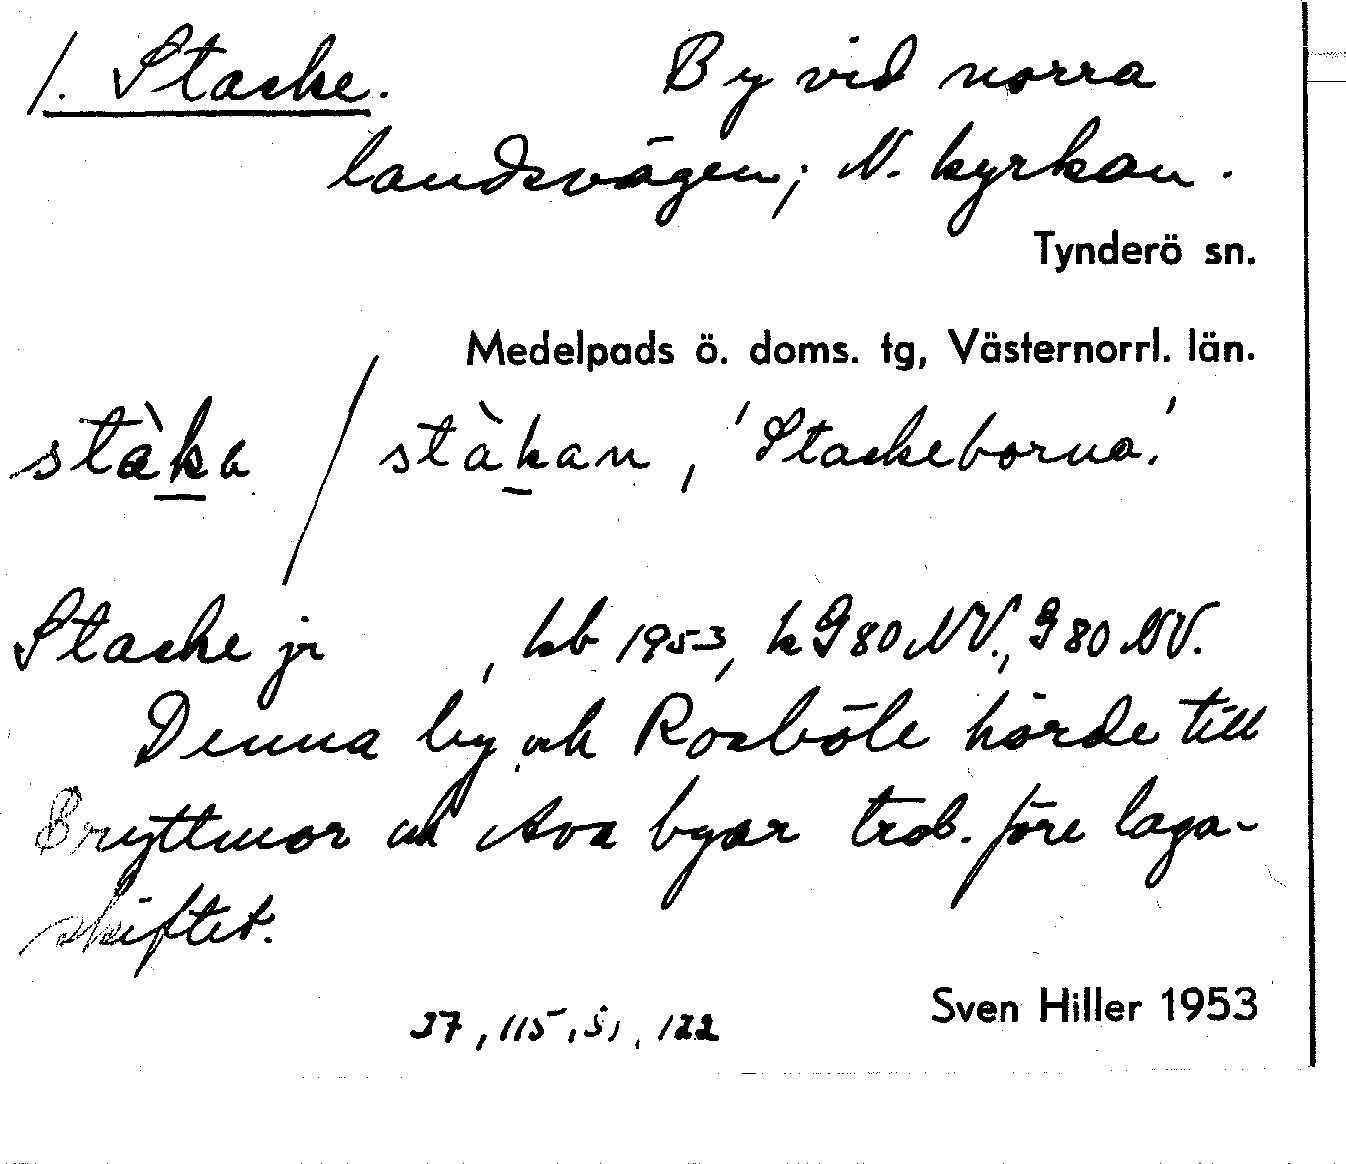 1. Stacke. By vid norra
landsvägen; N. kyrkan.
Tynderö sn.
Medelpads ö. doms. tg, Västernorrl. län.
stàka / stàkan, 'Stackeborna.'
Stacke jr , kb 1953, k G80NV., G80NV.
Denna by och Rosböle hörde till
Bryttmor och Ava byar trol. före laga-
skiftet.
Sven Hiller 1953
37, 115, 51, 122